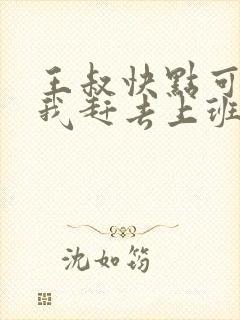 王叔快點可
我赶去上班
沈如筠